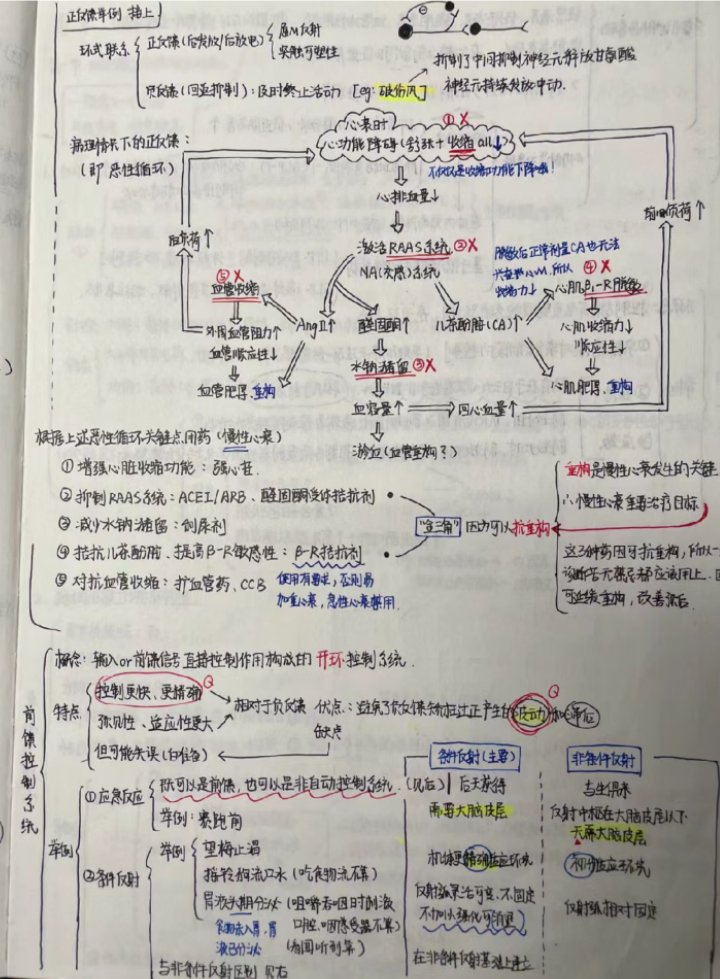 正反馈举例 接上
环式联系 正反馈(后发放/后放电) 屈M反射
突触可塑性
负反馈(回返抑制):及时终止活动 [eg:破伤风] 抑制了中间抑制神经元释放甘氨酸
神经元持续发放冲动.
病理情况下的正反馈:
(即恶性循环)
心衰时↓ ①X
心功能障碍(舒张+收缩all↓
不仅仅是收缩功能下降哦!
心排血量↓
后负荷↑
前负荷↑
激活RAAS系统 ②X
NA(交感)系统
脱敏后正常剂量CA也无法
兴奋 心M,所以
收缩力↓
④X
心肌β₁-R脱敏
⑤X
血管收缩
外周血管阻力↑
血管顺应性↓
血管肥厚.重构
AngⅡ↑
醛固酮↑
儿茶酚胺(CA)↑
心肌收缩力↓
顺应性↓
心肌肥厚.重构
水钠潴留 ③X
血容量↑ 回心血量↑
淤血(血管重构?)
根据上述恶性循环关键点用药(慢性心衰)
① 增强心脏收缩功能:强心甙.
② 抑制RAAS系统:ACEI/ARB、醛固酮受体拮抗剂
③ 减少水钠潴留:利尿剂
④ 拮抗儿茶酚胺、提高β-R敏感性:β-R拮抗剂
⑤ 对抗血管收缩:扩血管药、CCB
使用有要求,否则易
加重心衰,急性心衰禁用.
"金三角" 因为可以抗重构
重构是慢性心衰发生的关键
∴慢性心衰重要治疗目标
这3种药因可抗重构,所以一
诊断若无禁忌都应该用上.
可延缓重构,改善预后
前馈控制系统
概念:输入or前馈信号直接控制作用构成的开环控制系统.
特点
控制更快,更精确
预见性、适应性更大
但可能失误(白准备)
相对于负反馈 优点:避免了负反馈矫枉过正产生的波动和滞后
缺点
举例
①应急反应 既可以是前馈,也可以是非自动控制系统.(见后)
举例:赛跑前
②条件反射
举例
望梅止渴
摇铃狗流口水(吃食物流不算)
胃液头期分泌(咀嚼吞咽时刺激
口腔、咽感受器不算)
食物未入胃,胃
液已分泌
(看闻听到算)
与非条件反射区别 见右
条件反射(主要)
后天获得
需要大脑皮层
机体更精确适应环境
反射数量活可变、不固定
不加以强化可消退
在非条件反射基础上建立
非条件反射
与生俱来
反射中枢在大脑皮层以下
无需大脑皮层
初步适应环境
反射数相对固定